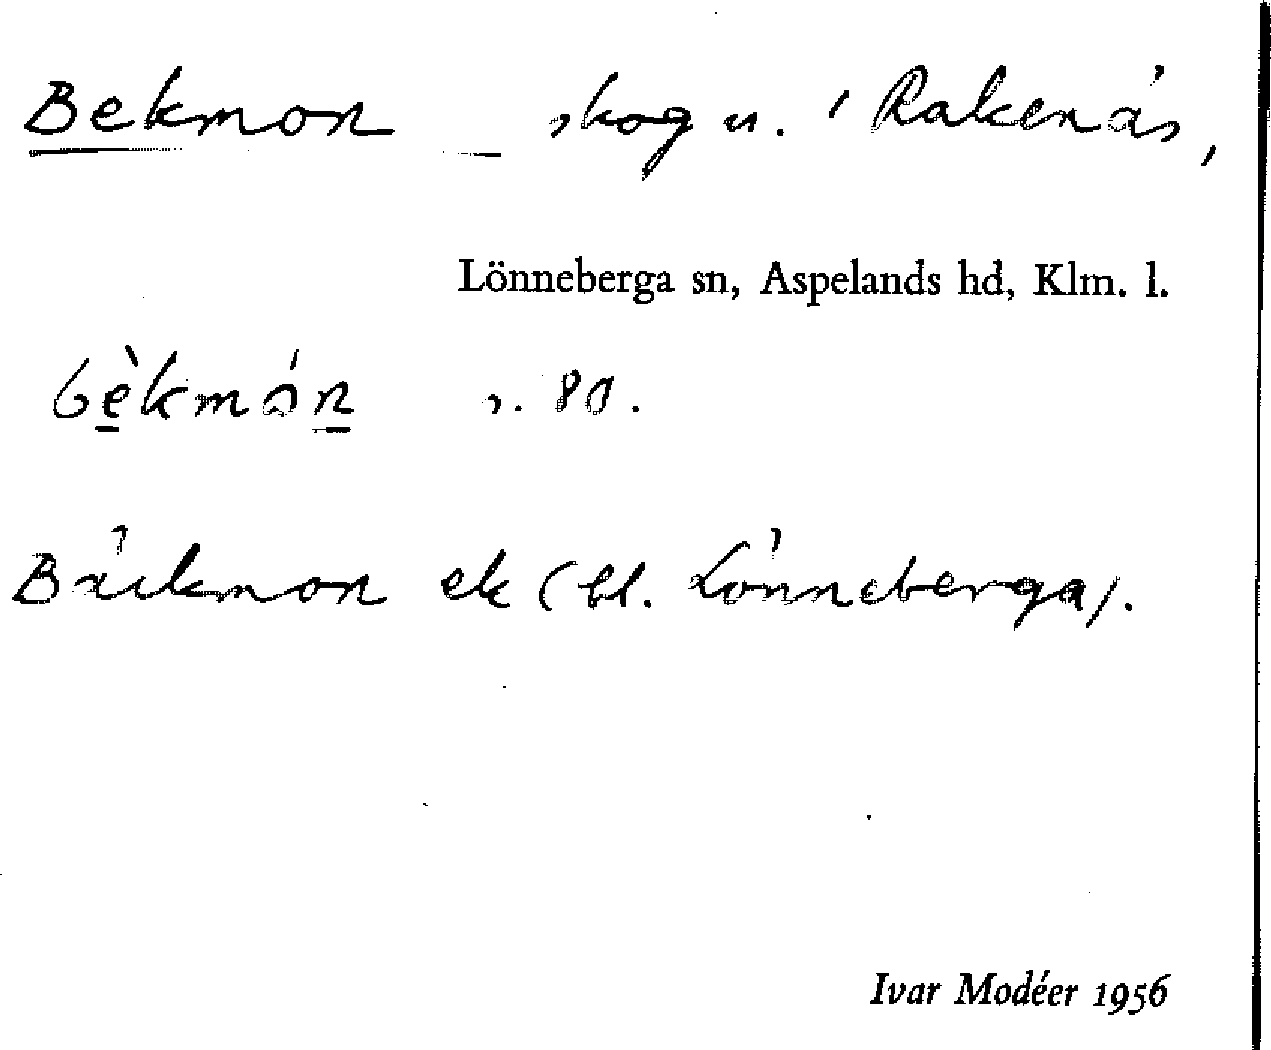 Bekmon _ skog n. i Rakenäs,
Lönneberga sn, Aspelands hd, Klm. l.
bèkmón s. 80.
Bäckmon ek (bl. Lönneberga).
Ivar Modéer 1956